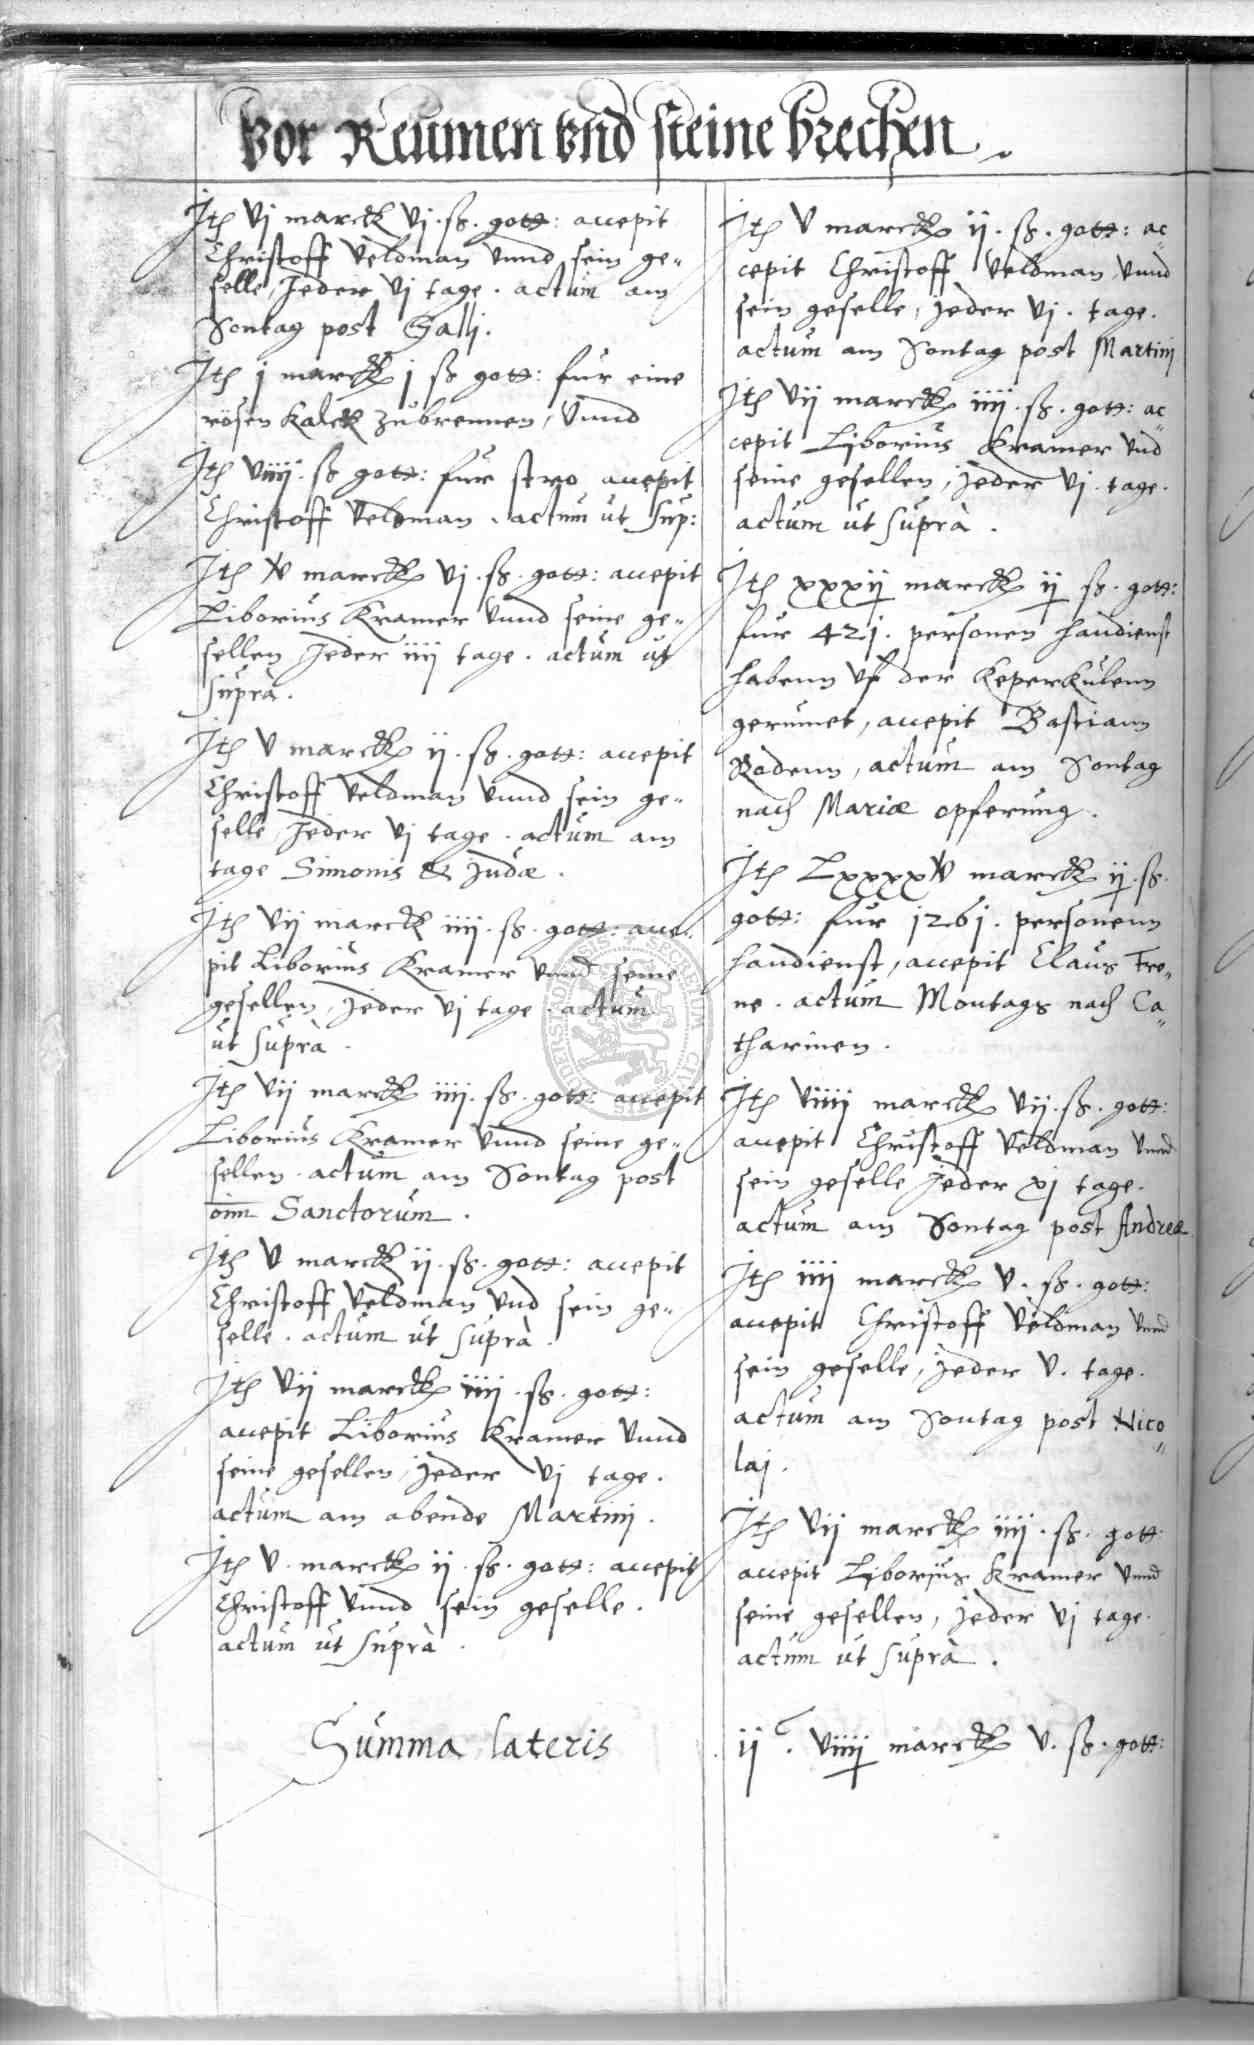 Vor Reumen vnd steine brechen.
Ith vj marck vj. ß. gott: accepit
Christoff Veldman vnnd sein ge„
selle, Jeder vj tage. actum am
Sontag post Galli.
Ith j marck j ß gott: fur eine
rösen Kalck zubrennen, vnnd
Ith viiij. ß gott: fur stro accepit
Christoff Veldman. actum ut sup:
Ith marck vj. ß. gott: accepit
Liborius Kramer vnnd seine ge„
sellen Jeder iiij tage. actum ut
suprà.
Ith v marck ij. ß. gott: accepit
Christoff Veldman vnnd sein ge„
selle, Jeder vj tage. actum am
tage Simonis & Judæ.
Ith vij marck iiij. ß. gott: acce„
pit Liborius Kramer vnnd seine
gesellen, Jeder vj tage. actum
ut suprà.
Ith vij marck iiij. ß. gott: accepit
Liborius Kramer vnnd seine ge„
sellen. actum am Sontag post
oim Sanctorum.
Ith v marck ij. ß. gott: accepit
Christoff Veldman vnd sein ge„
selle. actum ut suprà.
Ith vij marck iiij. ß. gott:
accepit Liborius Kramer vnnd
seine gesellen, Jeder vj tage.
actum am abende Martinj.
Ith v. marck ij. ß. gott: accepit
Christoff vnnd sein geselle.
actum ut suprà.
Ith v marck ij. ß. gott: ac„
cepit Christoff Veldman vnnd
sein geselle, jeder vj. tage.
actum am Sontag post Martinj
Ith vij marck iiij. ß. gott: ac„
cepit Liborius Kramer vnd
seine gesellen, Jeder vj. tage.
actum ut suprà.
Ith xxxij marck ij ß. gott:
fur 421. personen handienst
habenn vf der Keperkulenn
gerumet, accepit Bastiann
Rodenn, actum am Sontag
nach Mariæ opferung.
Ith Lxxxxv marck ij. ß.
gott: fur 1261. personenn
handienst, accepit Claus Fre„
ne. actum Montags nach Ca„
tharinen.
Ith viiij marck vij. ß. gott:
accepit Christoff Veldman vnnd
sein geselle Jeder xj tage.
actum am Sontag post Andreæ
Ith iiij marck v. ß. gott:
accepit Christoff Veldman vnnd
sein geselle, Jeder v. tage.
actum am Sontag post Nico„
laj.
Ith vij marck iiij. ß. gott
accepit Liborius Kramer vnnd
seine gesellen, Jeder vj tage.
actum ut suprà.
Summa lateris ij C. viiij marck v. ß. gott: